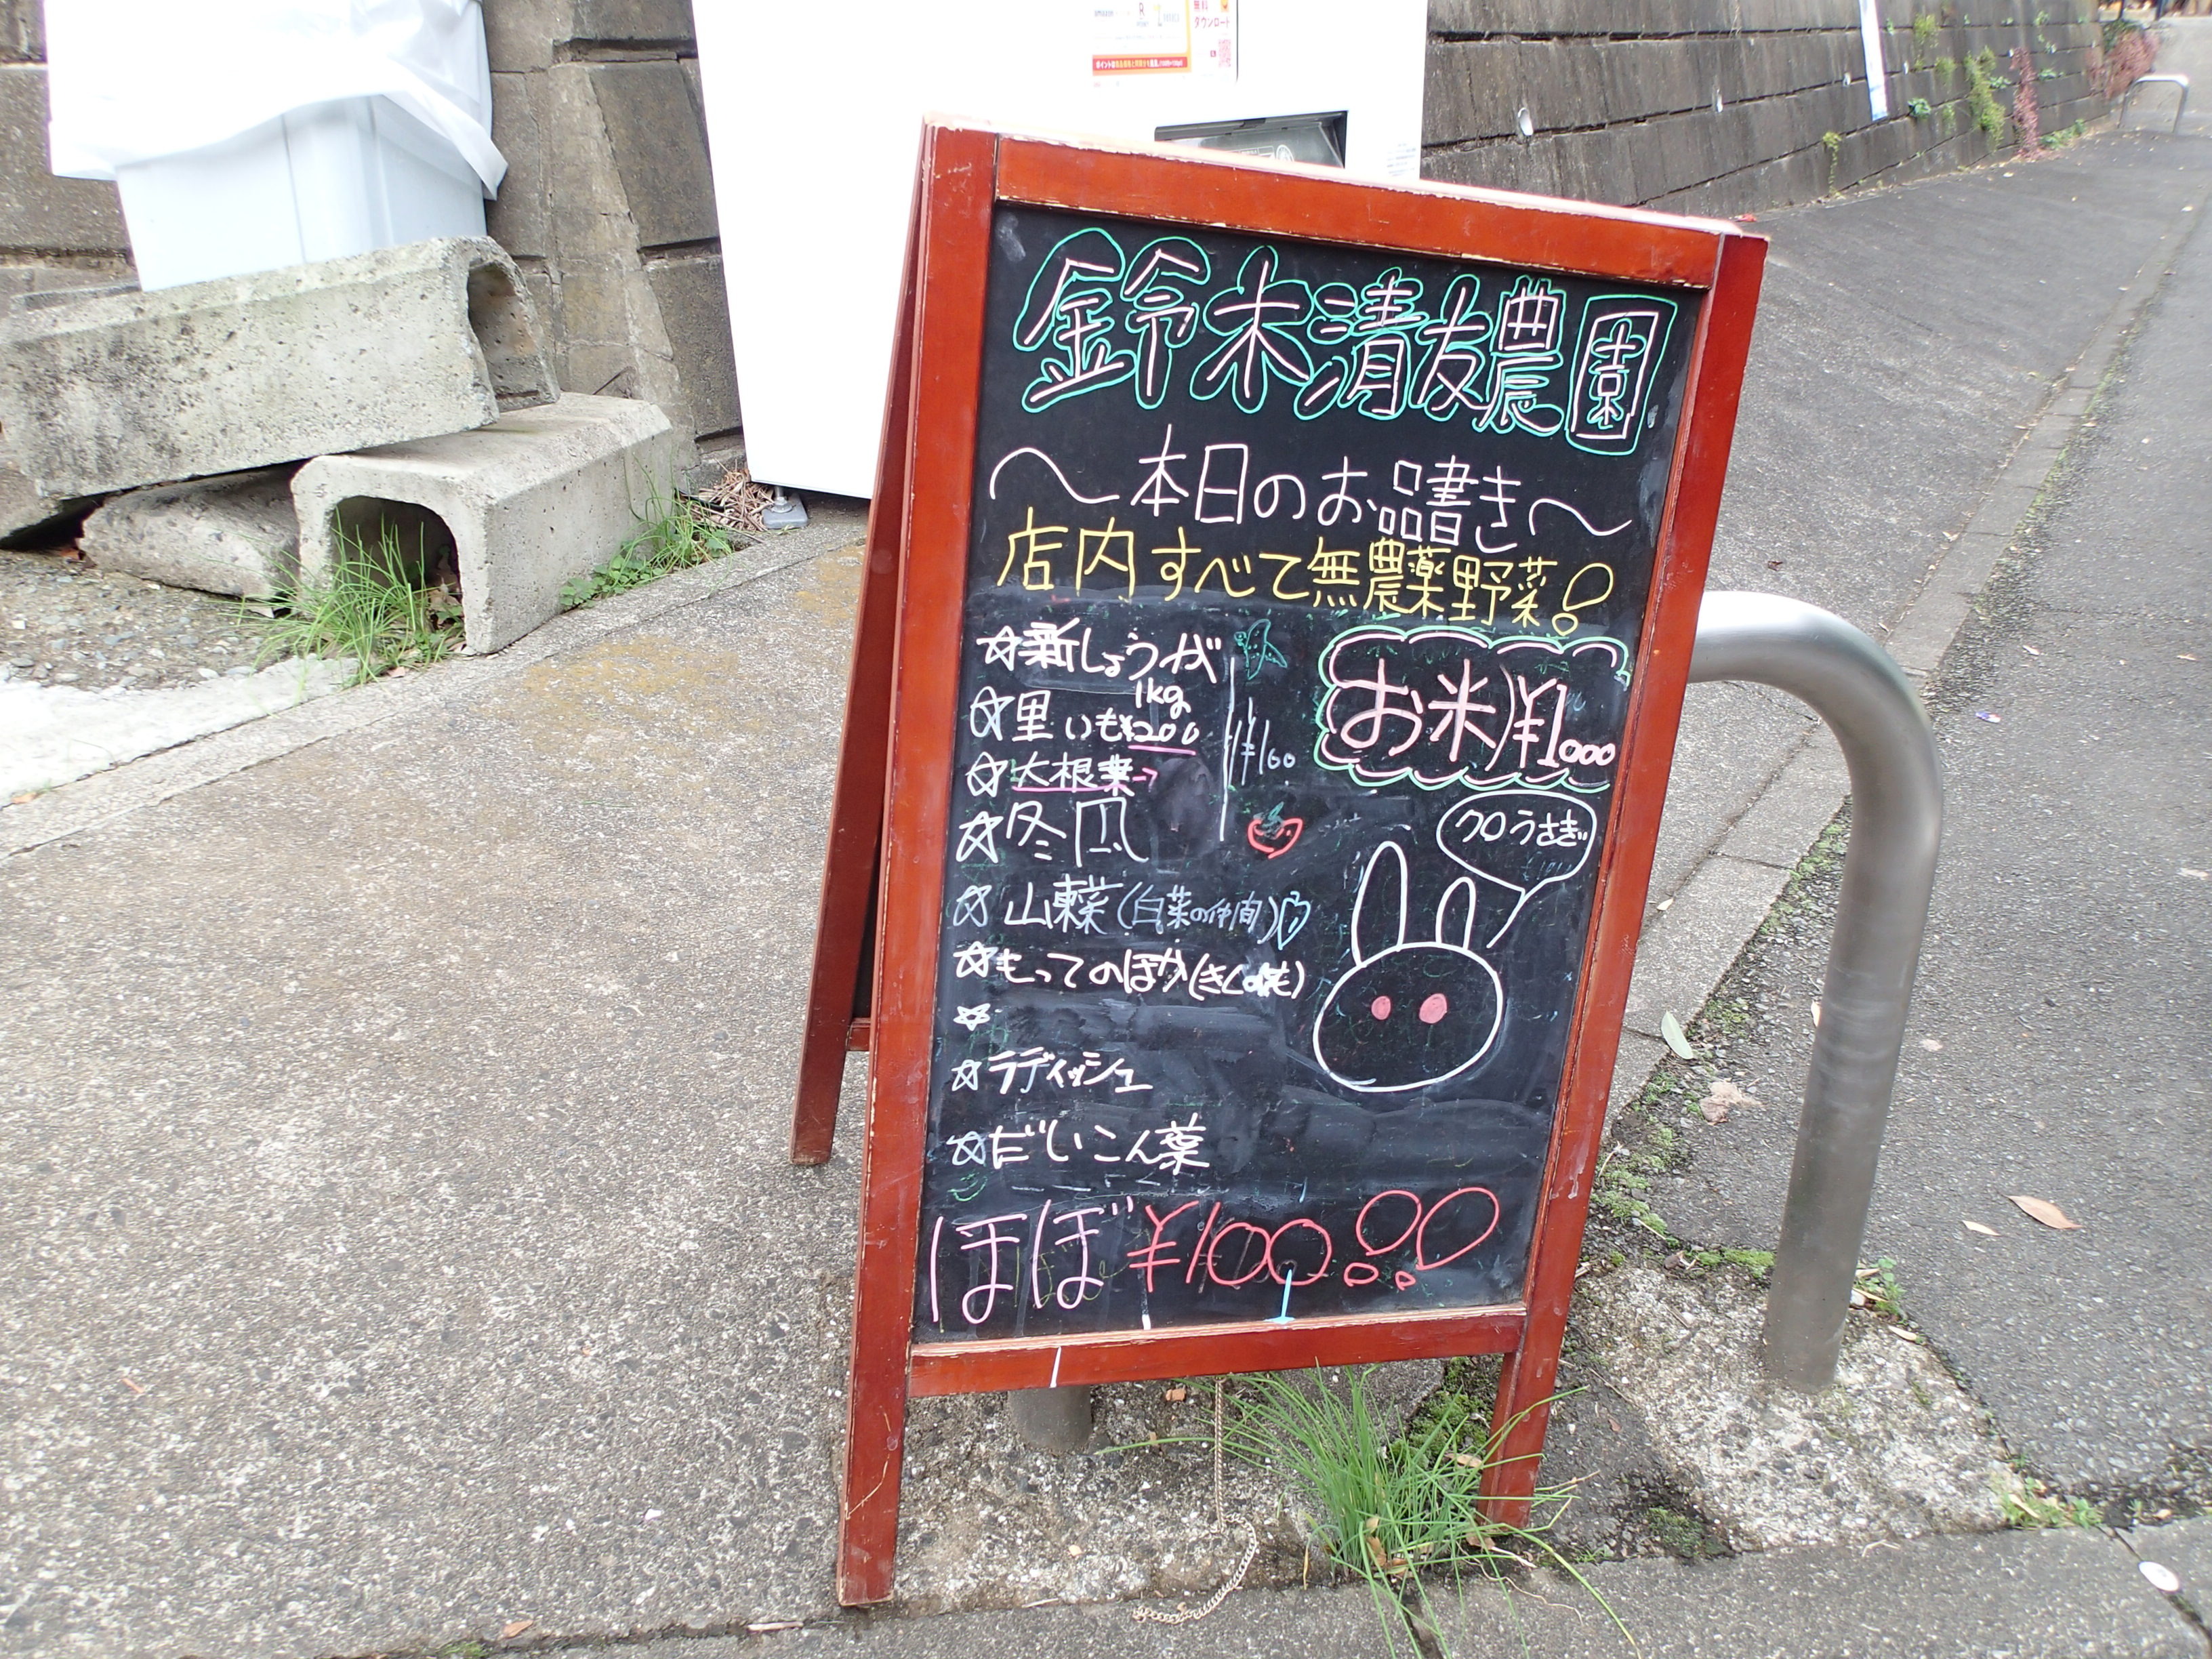 無料
ダウンロード
鈴木清友農園
～本日のお品書き～
店内すべて無農薬野菜!
☆新しょうが
1kg
☆里いも¥200
☆大根葉→
¥100
お米¥1000
☆冬瓜
クロうさぎ
☆山東菜(白菜の仲間)
☆もってのほか(きくの花)
☆
☆ラディッシュ
☆だいこん葉
ほぼ¥100!!